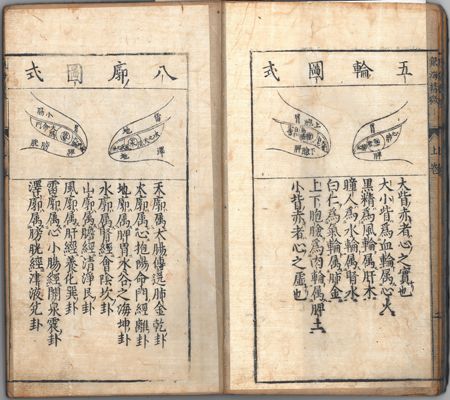 銀海精微 上卷
二
五輪圖式
大眥赤者心之實也
大小眥為血輪属心火
黑精為風輪属肝木
瞳人為水輪属腎水
白仁為氣輪属肺金
上下胞瞼為肉輪属脾土
小眥赤者心之虛也
八廓圖式
天廓属大腸傳送肺金乾卦
火廓属心抱陽命門經離卦
地廓属脾胃水谷之海坤卦
水廓属腎經會陰坎卦
山廓属膽經清淨艮卦
風廓属肝經養化巽卦
雷廓属心小腸經關泉震卦
澤廓属膀胱經津液兌卦